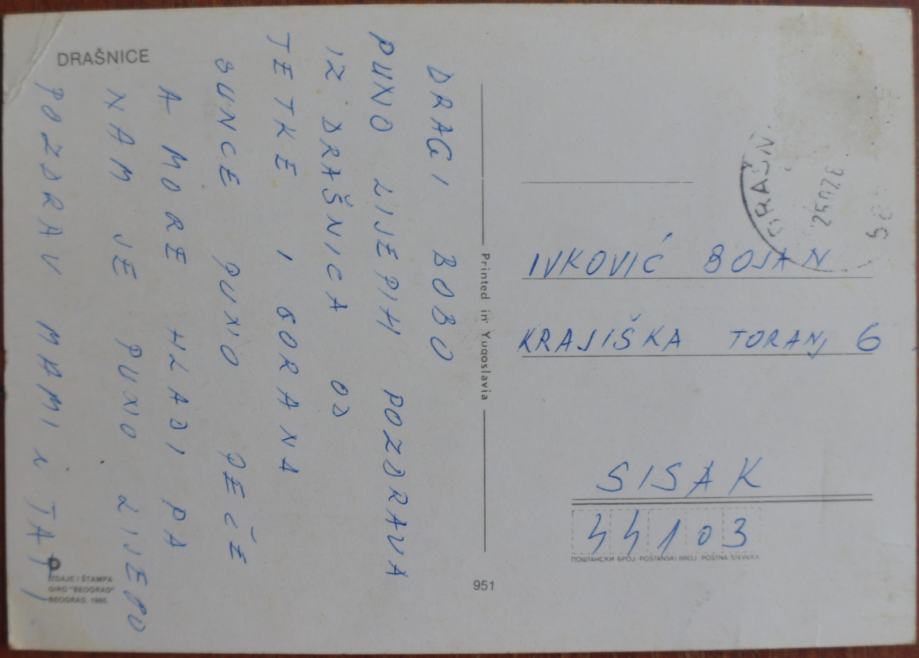 DRAŠNICE
DRAGI BOBO
PUNO LIJEPIH POZDRAVA
IZ DRAŠNICA OD
TETKE I GORANA
SUNCE PUNO PEČE
A MORE HLADI PA
NAM JE PUNO LIJEPO
POZDRAV MAMI I TATI
IZDAJE I ŠTAMPA
GIRO "BEOGRAD"
Printed in Yugoslavia
951
DRAŠN
IVKOVIĆ BOJAN
KRAJIŠKA TORANJ 6
SISAK
44103
ПОШТАНСКИ БРОЈ POŠTANSKI BROJ POŠTNA ŠTEVILKA